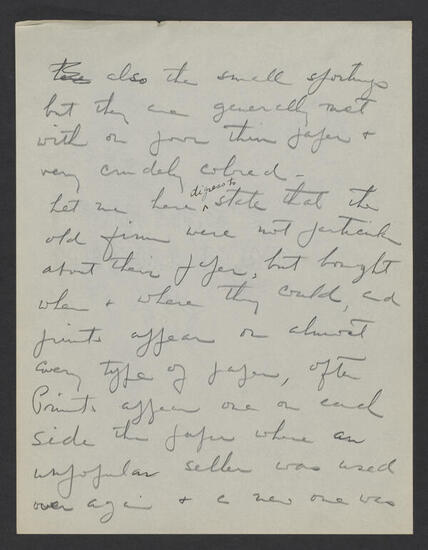 also the small sportings
but they are generally met
with on poor thin paper &
very crudely colored -
Let me here digress to state that the
old firm were not particular
about their paper, but bought
when & where they could, and
prints appear on almost
every type of paper, often
Prints appear one on each
side the paper where an
unpopular seller was used
over again & a new one was